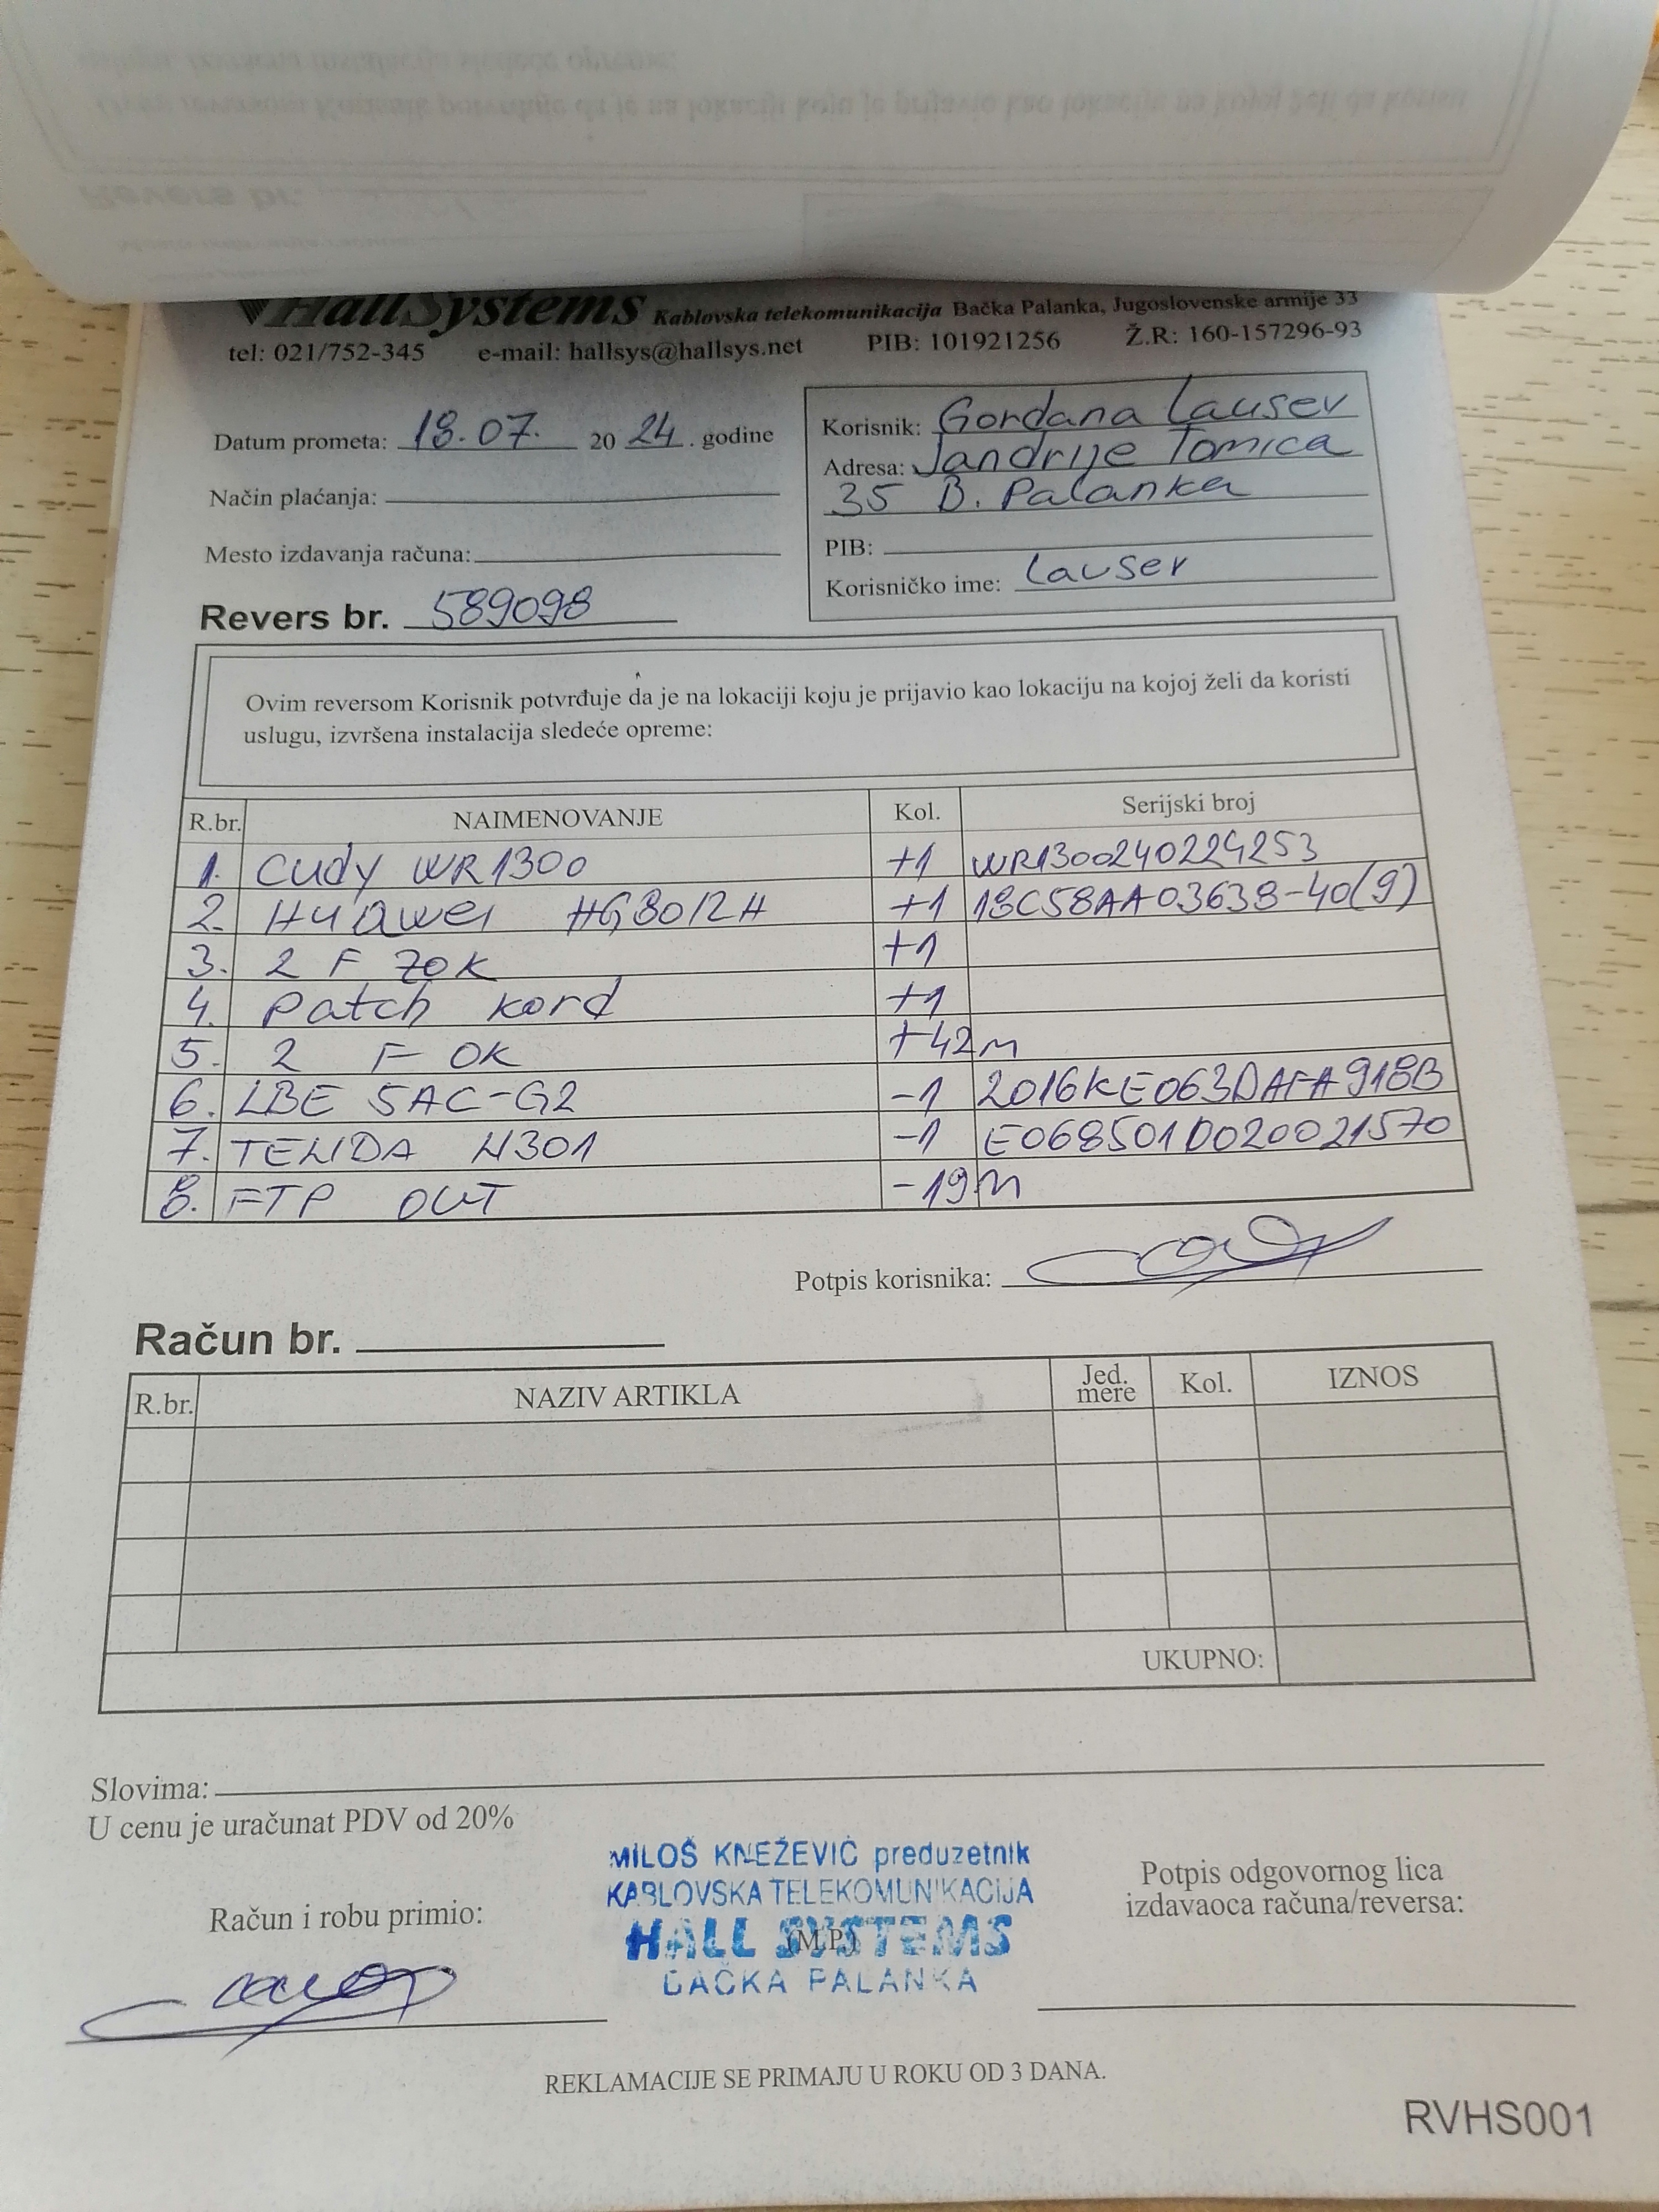 HallSystems Kablovska telekomunikacija Bačka Palanka, Jugoslovenske armije 33
tel: 021/752-345 e-mail: hallsys@hallsys.net PIB: 101921256 Ž.R: 160-157296-93
Datum prometa: 18.07. 20 24. godine
Način plaćanja:
Mesto izdavanja računa:
Revers br. 589098
Korisnik: Gordana Lausev
Adresa: Jandrije Tomica
35 B. Palanka
PIB:
Korisničko ime: Lauser
Ovim reversom Korisnik potvrđuje da je na lokaciji koju je prijavio kao lokaciju na kojoj želi da koristi
uslugu, izvršena instalacija sledeće opreme:
R.br. NAIMENOVANJE Kol. Serijski broj
1. Cudy WR1300 +1 WR1300240224253
2. Huawei HG8012H +1 18C58AA03638-40(9)
3. 2 F ZOK +1
4. Patch kord +1
5. 2 F OK +42m
6. LBE 5AC-G2 -1 2016KE063DAFA918B
7. TENDA N301 -1 E068501D020021570
8. FTP OUT -19m
Potpis korisnika:
Račun br.
R.br. NAZIV ARTIKLA Jed. mere Kol. IZNOS
UKUPNO:
Slovima:
U cenu je uračunat PDV od 20%
Račun i robu primio:
MILOŠ KNEŽEVIĆ preduzetnik
KABLOVSKA TELEKOMUNIKACIJA
HALL SYSTEMS
(M.P.)
BAČKA PALANKA
Potpis odgovornog lica
izdavaoca računa/reversa:
REKLAMACIJE SE PRIMAJU U ROKU OD 3 DANA.
RVHS001